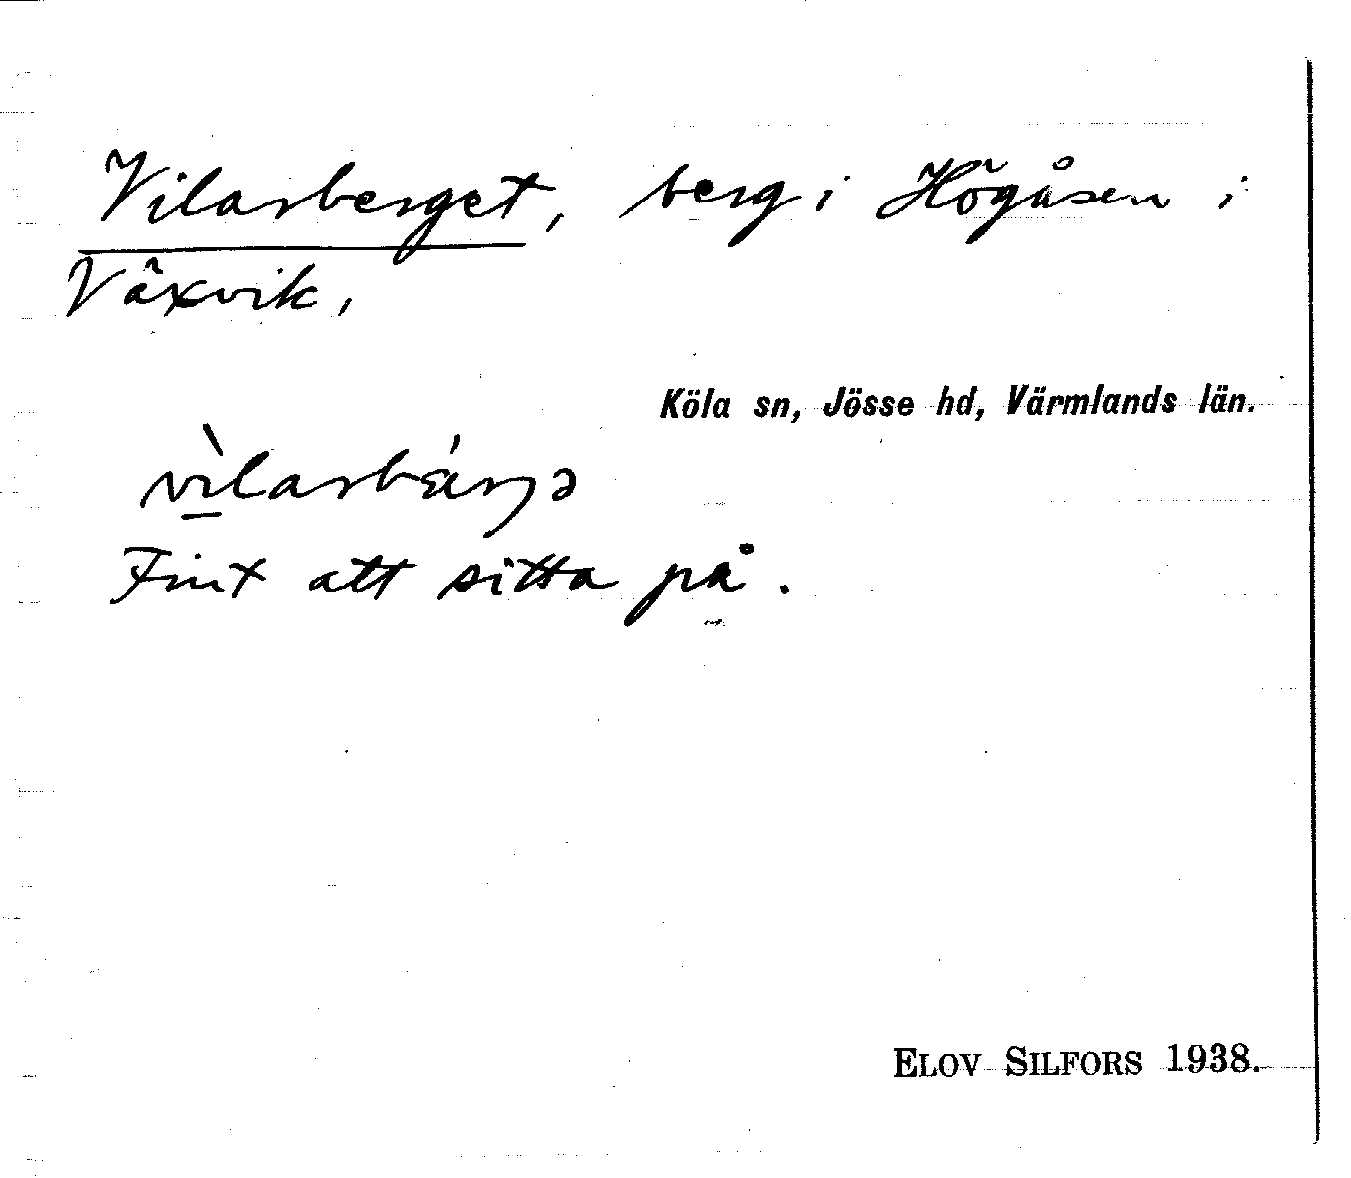 Vilarberget, berg i Högåsen i
Växvik,
Köla sn, Jösse hd, Värmlands län.
vìlarbä́rjə
Fint att sitta på.
ELOV SILFORS 1938.